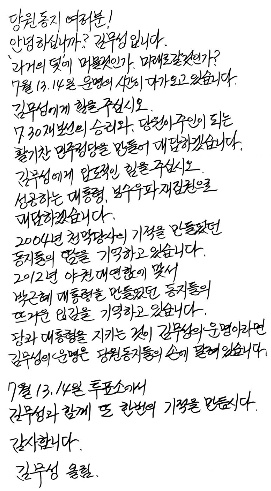 당원동지 여러분!
안녕하십니까? 김무성입니다.
'과거의 덫에 머물것인가, 미래로갈것인가?
7월 13.14일 운명의 시간이 다가오고 있습니다.
김무성에게 힘을 주십시오.
7.30재보선의 승리와, 당원이주인이 되는
활기찬 민주정당을 만들어 보답하겠습니다.
김무성에게 압도적인 힘을 주십시오.
성공하는 대통령, 보수우파 재집권으로
보답하겠습니다.
2004년 천막당사의 기적을 만들었던
동지들의 땀을 기억하고 있습니다.
2012년 야권대연합에 맞서
박근혜 대통령을 만들었던, 동지들의
뜨거운 열정을 기억하고 있습니다.
당과 대통령을 지키는 것이 김무성의 운명이라면
김무성의 운명은 당원동지들의 손에 달려있습니다.
7월 13.14일 투표소에서
김무성과 함께 또 한번의 기적을 만듭시다.
감사합니다.
김무성 올림.